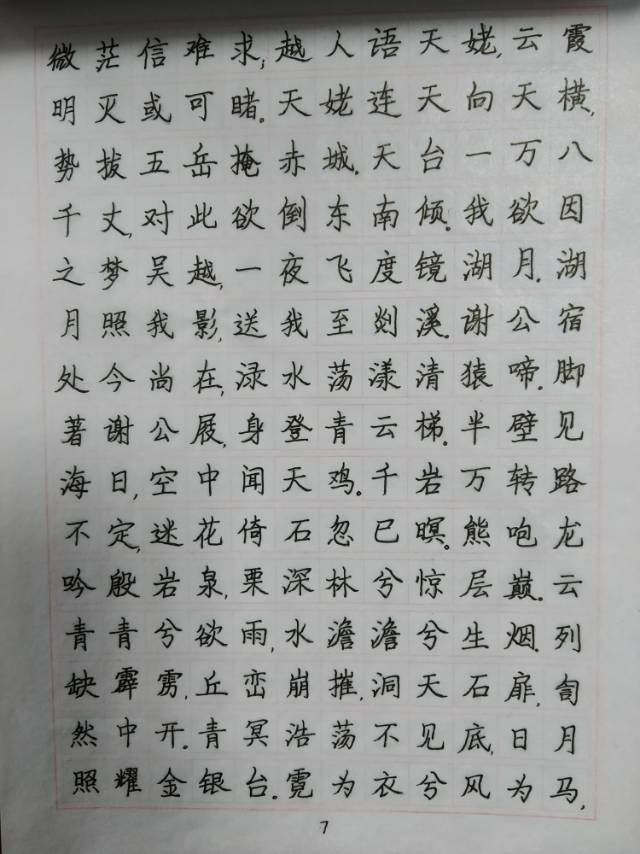 微茫信难求;越人语天姥,云霞
明灭或可睹。天姥连天向天横,
势拔五岳掩赤城。天台一万八
千丈,对此欲倒东南倾。我欲因
之梦吴越,一夜飞度镜湖月。湖
月照我影,送我至剡溪。谢公宿
处今尚在,渌水荡漾清猿啼。脚
著谢公屐,身登青云梯。半壁见
海日,空中闻天鸡。千岩万转路
不定,迷花倚石忽已暝。熊咆龙
吟殷岩泉,栗深林兮惊层巅。云
青青兮欲雨,水澹澹兮生烟。列
缺霹雳,丘峦崩摧,洞天石扉,訇
然中开。青冥浩荡不见底,日月
照耀金银台。霓为衣兮风为马,
7